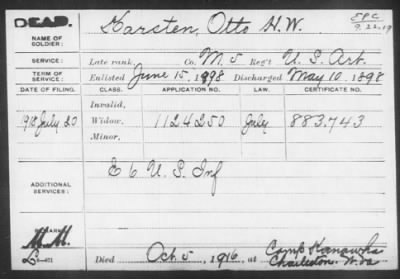 DEAD.
NAME OF SOLDIER:
Karsten, Otto H. W.
9.22.19
SERVICE:
Late rank, Co. M. 5 Reg't U. S. Art.
TERM OF SERVICE:
Enlisted June 15, 1898 Discharged May 10. 1898
DATE OF FILING. CLASS. APPLICATION NO. LAW. CERTIFICATE NO.
Invalid,
1918 July 20 Widow, 1124250 July 883.743
Minor,
ADDITIONAL SERVICES:
E 6 U. S. Inf
Died Oct. 5, 1916, at Camp Kanawha
Charleston, W. Va